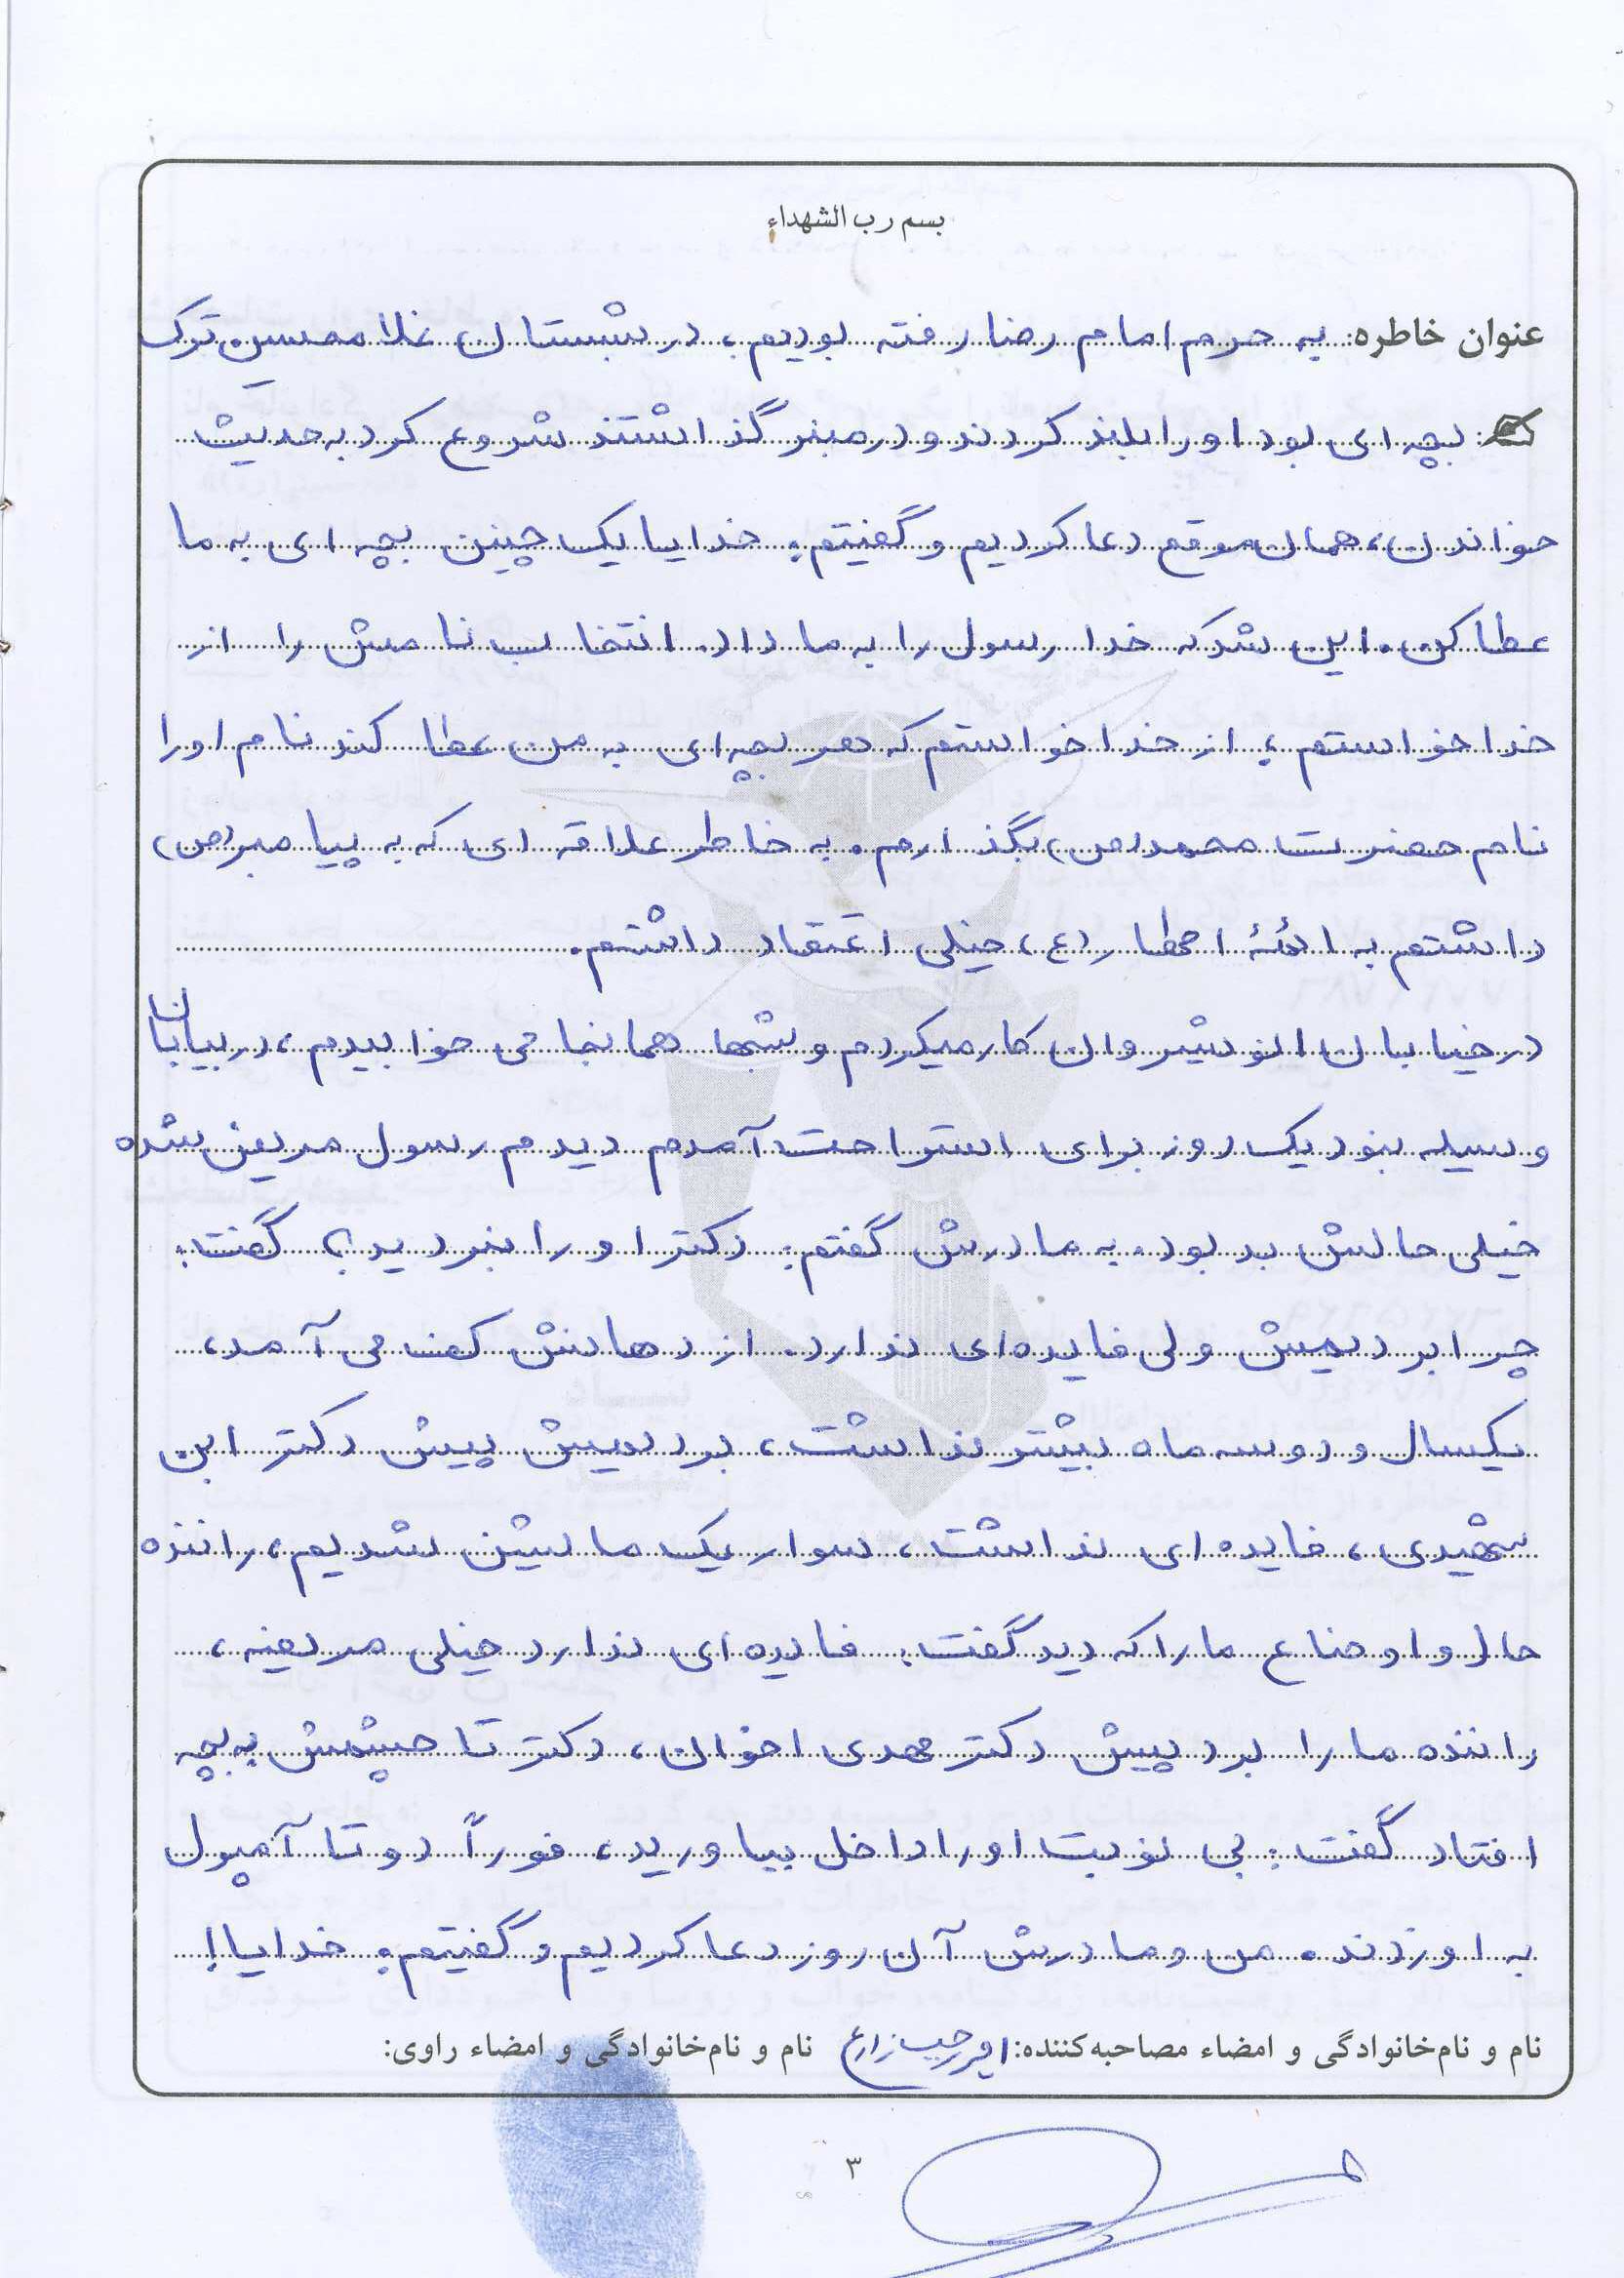 بسم رب الشهداء
عنوان خاطره: به حرم امام رضا رفته بودیم، در شبستان غلامحسین ترک
بچه ای بود او را بلند کردند و در منبر گذاشتند شروع کرد به حدیث
خواندن، همان موقع دعا کردیم و گفتیم: خدایا یک چنین بچه ای به ما
عطا کن. این شد که خدا رسول را به ما داد. انتخاب نامش را از
خدا خواستم، از خدا خواستم که هر بچه ای به من عطا کند نام او را
نام حضرت محمد (ص) بگذارم. به خاطر علاقه ای که به پیامبر (ص)
داشتم به ائمهٔ اطهار (ع) خیلی اعتقاد داشتم.
در خیابان انوشیروان کار میکردم و شبها همانجا می خوابیدم، در بیابان
وسیله نبود یک روز برای استراحت آمدم دیدم رسول مریض شده
خیلی حالش بد بود. به مادرش گفتم: دکتر او را نبردید؟ گفت:
چرا بردیمش ولی فایده ای ندارد. از دهانش کف می آمد،
یکسال و دو سه ماه بیشتر نداشت، بردیمش پیش دکتر ابن
شهیدی، فایده ای نداشت، سوار یک ماشین شدیم، راننده
حال و اوضاع ما را که دید گفت: فایده ای ندارد خیلی مریضه،
راننده ما را برد پیش دکتر مهدی اخوان، دکتر تا چشمش به بچه
افتاد گفت: بی نوبت او را داخل بیاورید، فوراً دو تا آمپول
به او زدند. من و مادرش آن روز دعا کردیم و گفتیم: خدایا!
نام و نام‌خانوادگی و امضاء مصاحبه‌کننده: نام و نام‌خانوادگی و امضاء راوی:
۳